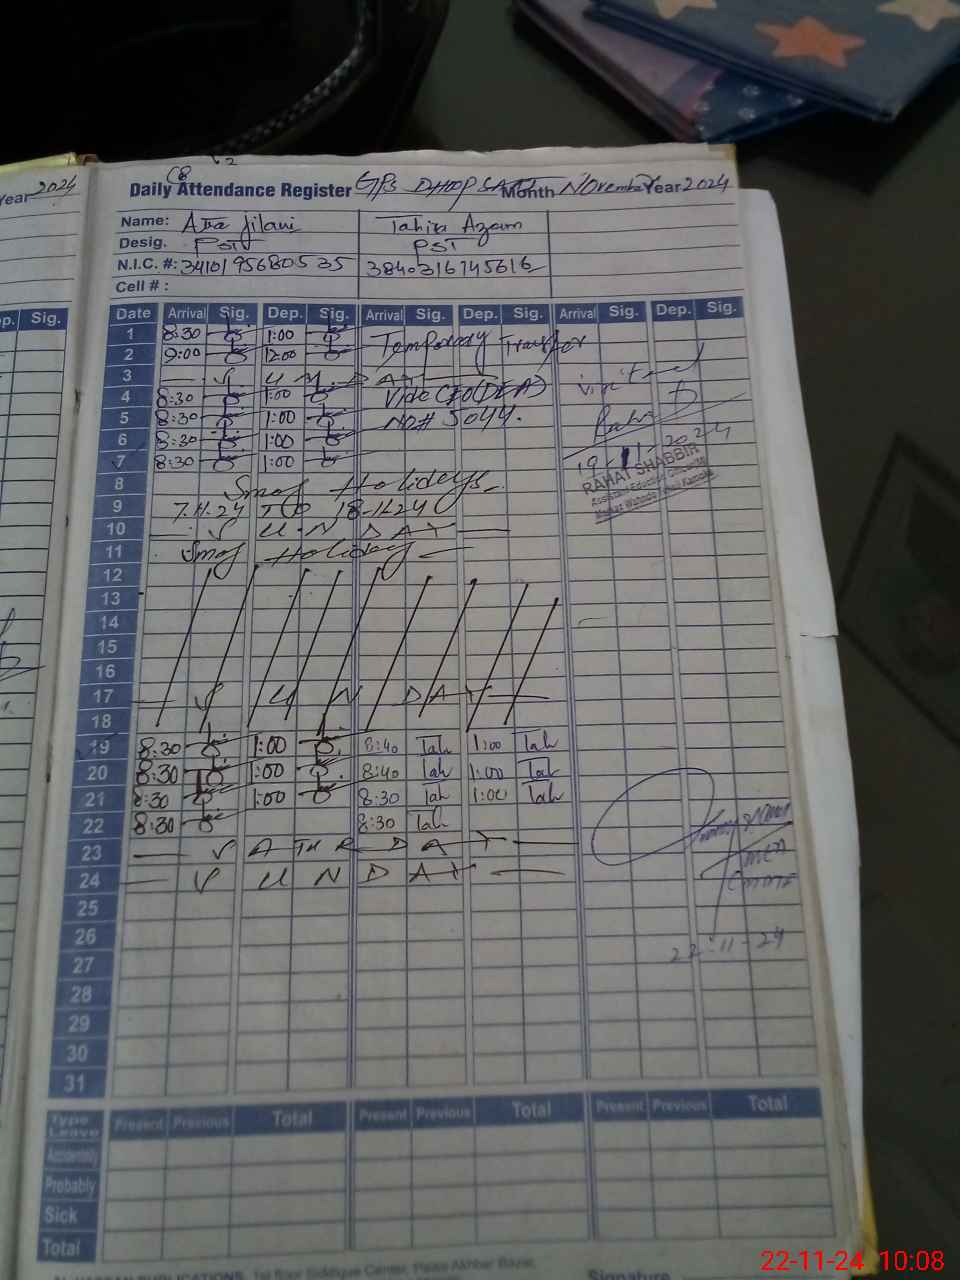 Year 2024
Daily Attendance Register GPS DHOOP SARI Month November Year 2024
Name: Atta Jilani Tahira Azam
Desig. PST PST
N.I.C. #: 3410195680535 3840316745616
Cell # :
ep. Sig.
Date Arrival Sig. Dep. Sig. Arrival Sig. Dep. Sig. Arrival Sig. Dep. Sig.
1 8:30 1:00 Temporary Transfer
2 9:00 12:00
3 — S U N D A Y —
4 8:30 1:00 Vide CEO (DEA)
5 8:30 1:00 No# 5044.
6 8:30 1:00
7 8:30 1:00
19-11-2024
RAHAT SHABBIR
8 Smog Holidays
9 7.11.24 TO 18-11-24
10 — S U N D A Y —
11 Smog Holiday —
12
13
14
15
16
17 — S U N D A Y —
18
19 8:30 1:00 8:40 Tah 1:00 Tah
20 8:30 1:00 8:40 Tah 1:00 Tah
21 8:30 1:00 8:30 Tah 1:00 Tah
22 8:30 8:30 Tah
23 — S A T U R D A Y —
24 — S U N D A Y —
25
26
22-11-24
27
28
29
30
31
Type Leave Present Previous Total Present Previous Total Present Previous Total
Accidently
Probably
Sick
Total
PUBLICATIONS, 1st floor Siddique Center,
Signature
22-11-24 10:08